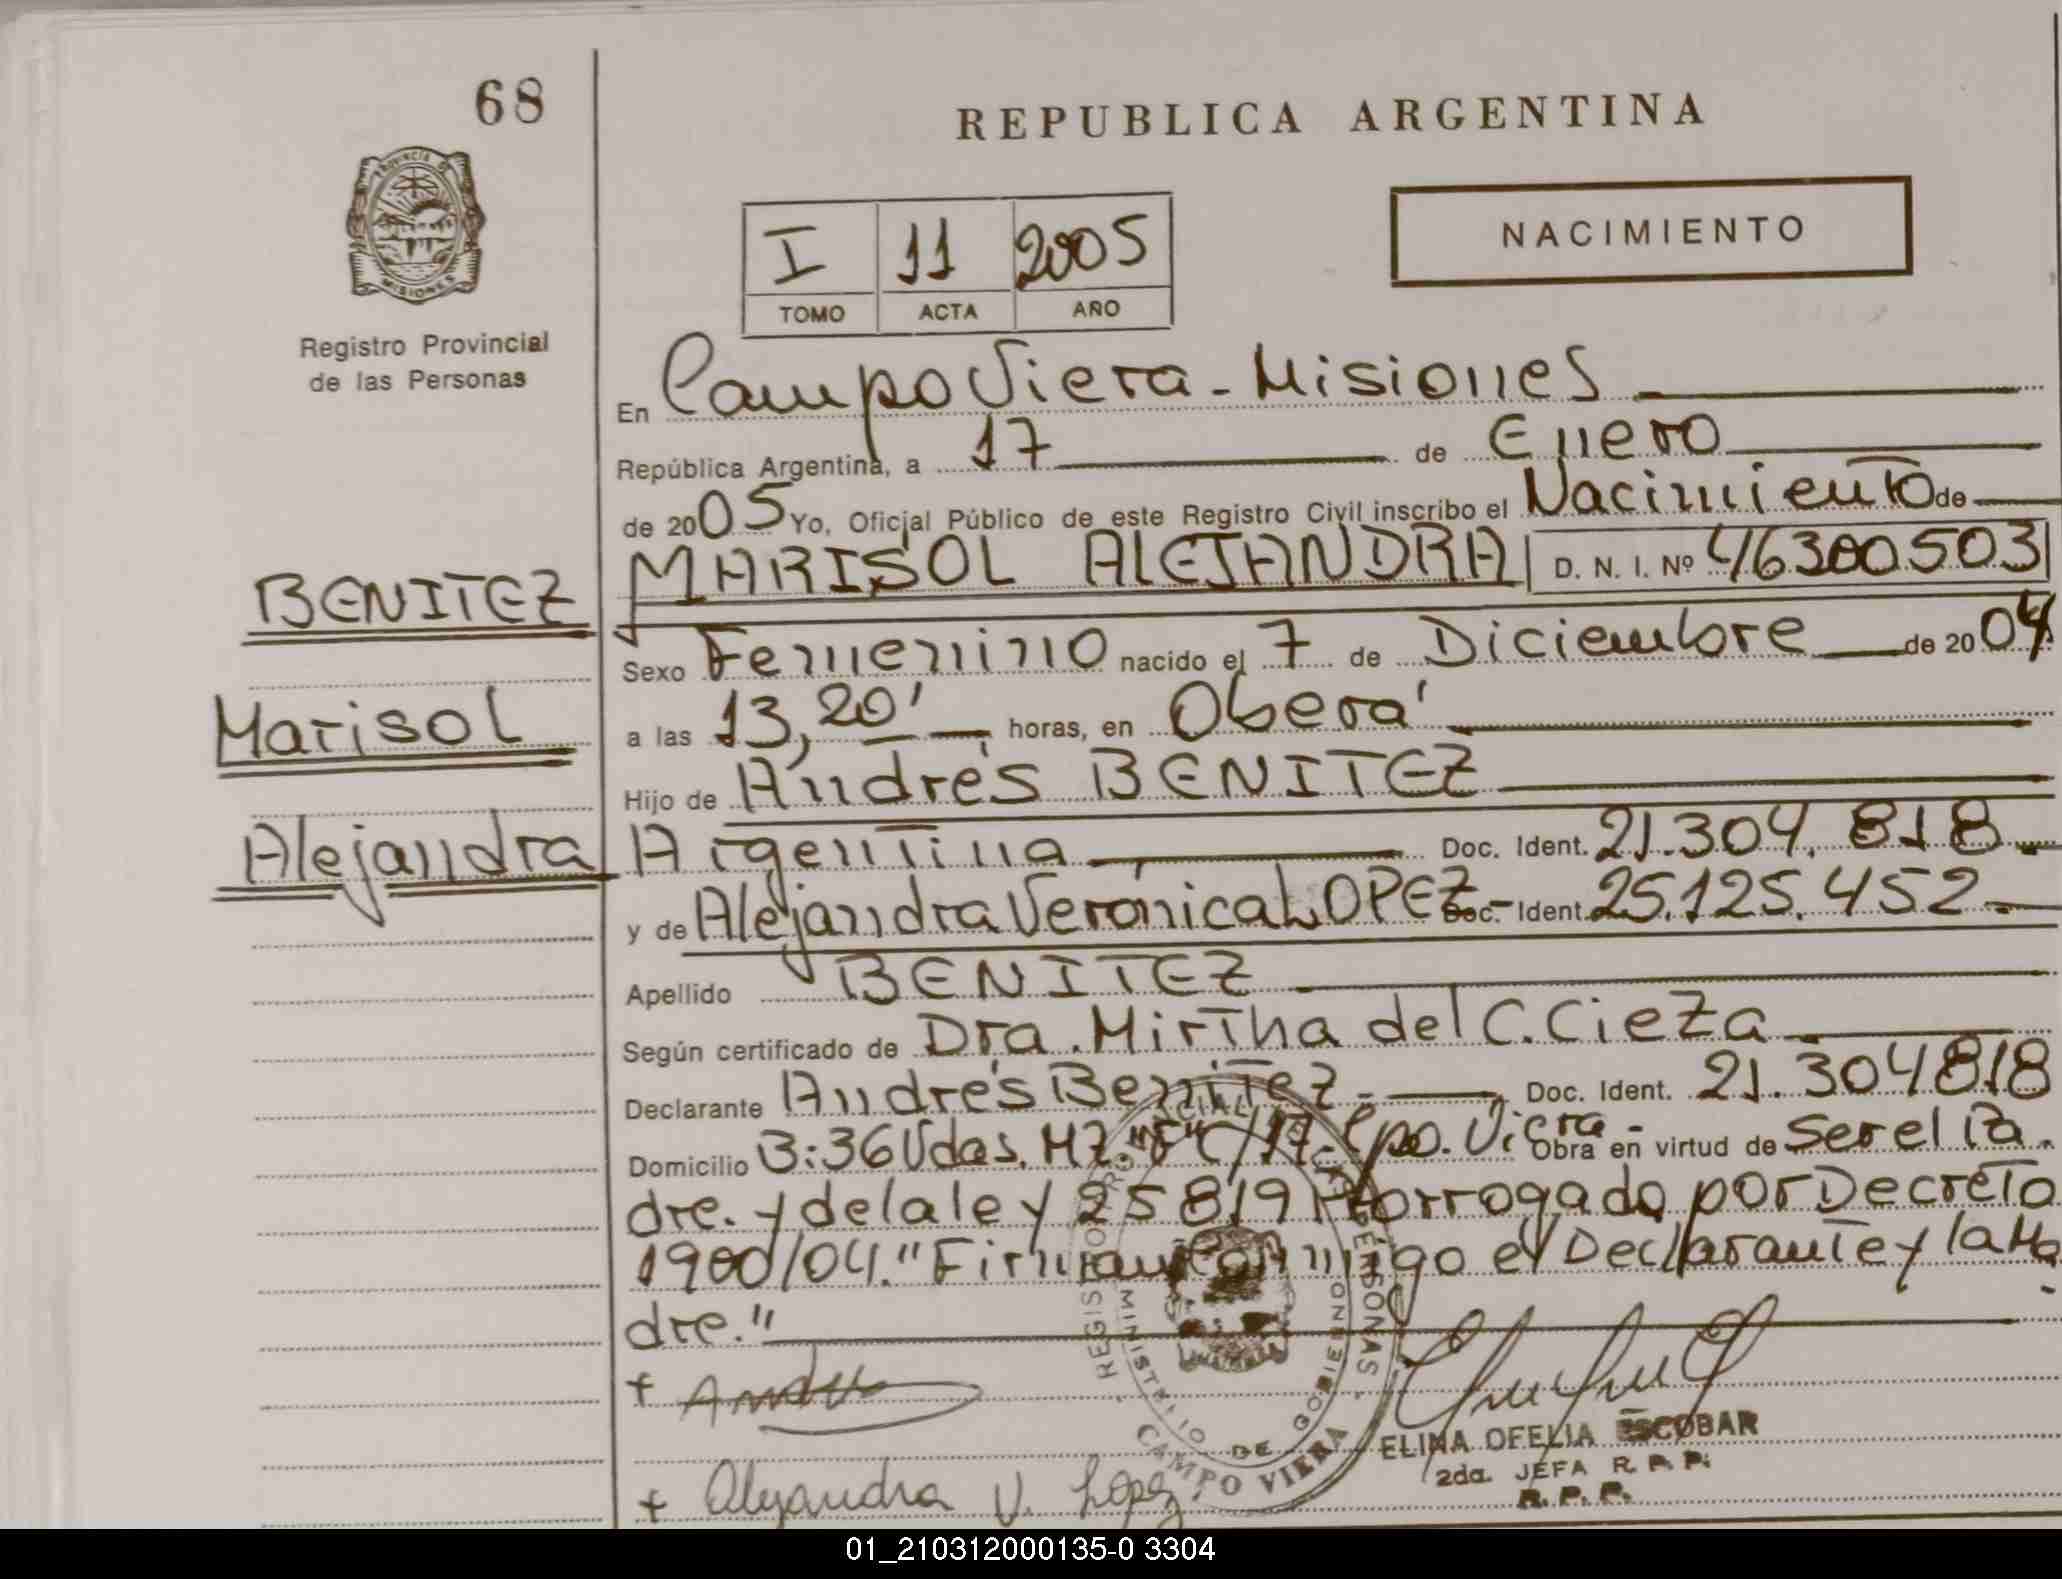 68
REPUBLICA ARGENTINA
PROVINCIA DE
MISIONES
NACIMIENTO
I 11 2005
TOMO ACTA AÑO
Registro Provincial
de las Personas
En Campo Viera - Misiones
República Argentina, a 17 de Enero
de 2005 Yo, Oficial Público de este Registro Civil inscribo el Nacimiento de
BENITEZ
MARISOL ALEJANDRA D. N. I. Nº 46300503
Sexo Femenino nacido el 7 de Diciembre de 2004
Marisol
a las 13,20' horas, en Oberá
Hijo de Andrés BENITEZ
Alejandra
Argentina Doc. Ident. 21.304.818
y de Alejandra Verónica LOPEZ - Doc. Ident. 25.125.452
Apellido BENITEZ
Según certificado de Dra. Mirtha del C. Cieza
Declarante Andrés Benitez - Doc. Ident. 21.304818
Domicilio B: 36 Vdas. MZ. "F" C/17 - Cpo. Viera - Obra en virtud de Ser el Pa
dre. y de la ley 25819 Prorrogado por Decreto
1900/04. "Firman conmigo el Declarante y la Ma
dre."
REGISTRO PROVINCIAL DE LAS PERSONAS
MINISTERIO DE GOBIERNO
CAMPO VIERA
ELINA OFELIA ESCOBAR
2da. JEFA R. P. P.
R. P. P.
+ Alejandra V. Lopez
01_210312000135-0 3304